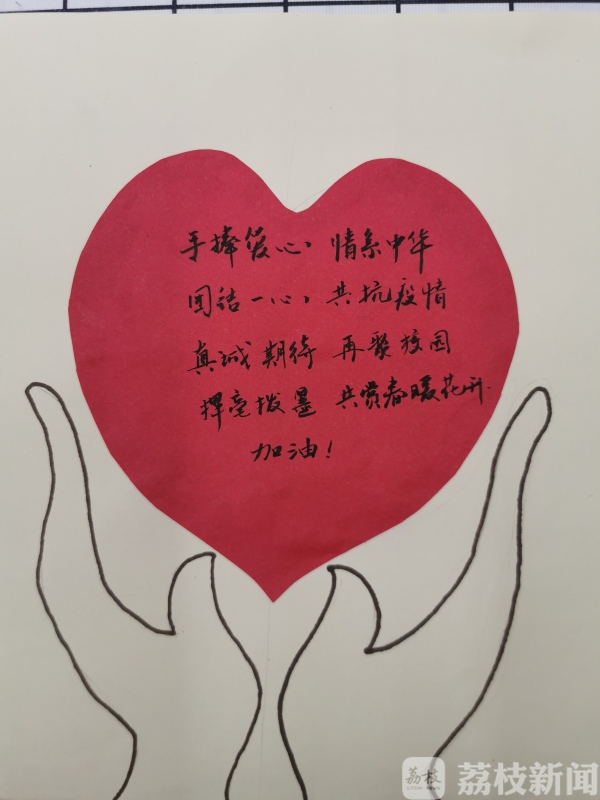 手捧爱心，情系中华
团结一心，共抗疫情
真诚期待 再聚校园
挥毫拨墨 共赏春暖花开.
加油！
荔枝 荔枝新闻